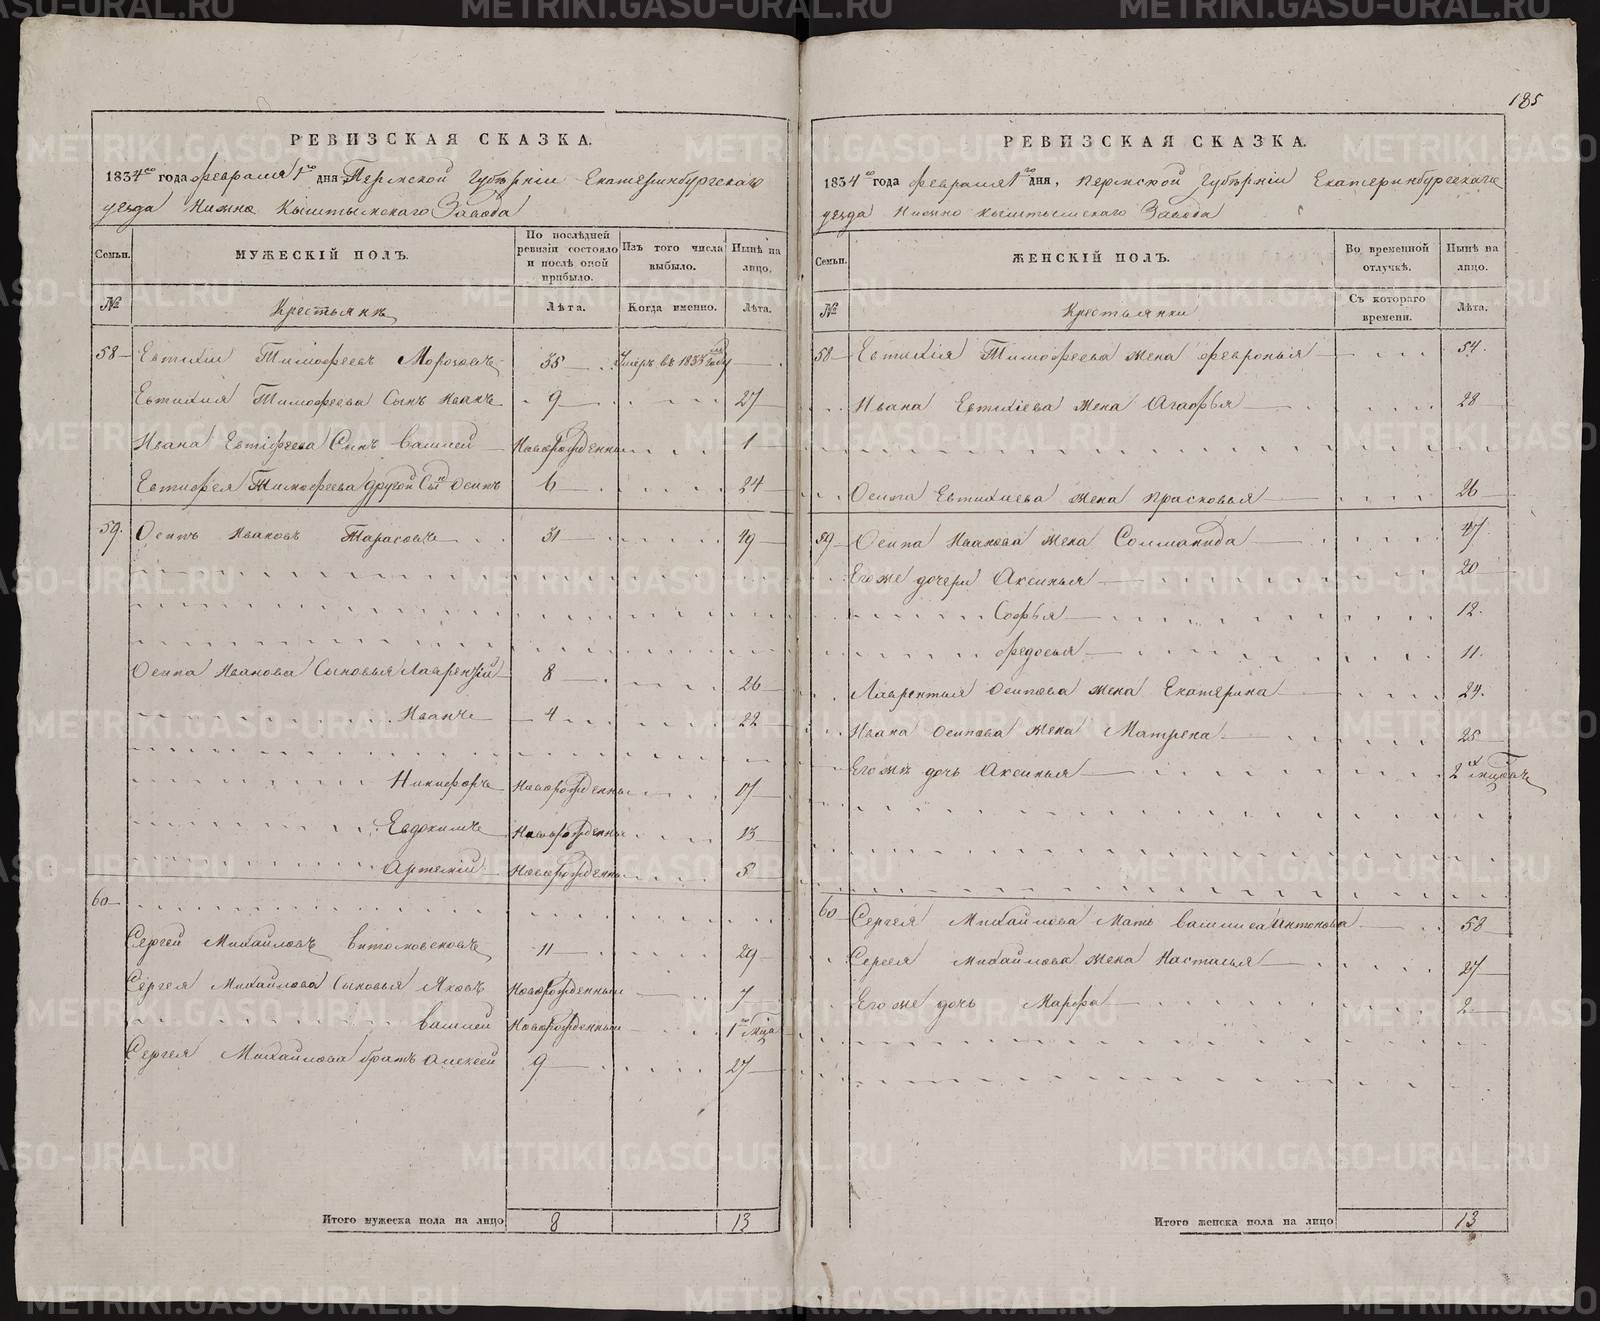 185
РЕВИЗСКАЯ СКАЗКА.
1834го года февраля 1го дня, Пермской Губѣрніи Екатеринбургскаго
уезда Нижно Кыштымскаго Завода
Семьи.
МУЖЕСКІЙ ПОЛЪ.
По послѣдней ревизіи состояло и послѣ оной прибыло.
Изъ того числа выбыло.
Нынѣ на лицо.
№
Крестьянъ
Лѣта.
Когда именно.
Лѣта.
58 Евтихій Тимофеевъ Морозовъ 35 Умеръ въ 1833 году
Евтихия Тимофеева Сынъ Иванъ 9 27
Ивана Евтифеева Сынъ Василей Новорожденны 1
Евтифея Тимофеева другой Сын Осипъ 6 24
59. Осипъ Ивановъ Тарасовъ 31 49
Осипа Иванова Сыновья Лаврентій 8 26
Иванъ 4 22
Никифоръ Новорожденны 17
Евдокимъ Новорожденны 13
Артемій Новорожденны 5
60
Сергей Михайловъ 11 29
Сергея Михайлова Сыновья Яковъ Новорожденныи 7
Василей Новорожденныи 1го мца
Сергея Михайлова братъ Алексей 9 27
Итого мужеска пола на лицо 8 13
РЕВИЗСКАЯ СКАЗКА.
1834го года февраля 1го дня, Пермской Губѣрніи Екатеринбургскаго
уезда Нижно Кыштымскаго Завода
Семьи.
ЖЕНСКІЙ ПОЛЪ.
Во временной отлучкѣ.
Нынѣ на лицо.
№
Крестьянки
Съ котораго времени.
Лѣта.
58 Евтихія Тимофеева жена Февронья 54.
Ивана Евтихіева жена Агафья 28
Осипа Евтихиева жена Прасковья 26
59 Осипа Иванова жена Соломанида 47
Его же дочери Аксинья 20
Софья 12.
Федосья 11.
Лаврентья Осипова жена Екатерина 24.
Ивана Осипова жена Матрена 25
Его жъ дочь Аксинья 2х мцовъ
60 Сергея Михайлова Мать Василиса Антонова 58
Сергея Михайлова жена Настасья 27
Его же дочь Марфа 2
Итого женска пола на лицо 13
METRIKI.GASO-URAL.RU